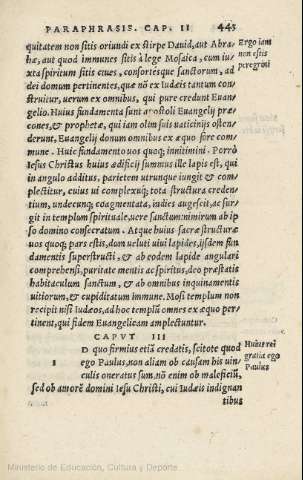 PARAPHRASIS. CAP. II 445
quitatem non sitis oriundi ex stirpe Dauid, aut Abra-
hæ, aut quod immunes sitis à lege Mosaica, cum iu-
xta spiritum sitis ciues, consortesque sanctorum, ad
dei domum pertinentes, quæ nō ex Iudæis tantum con-
struitur, uerum ex omnibus, qui pure credunt Euan-
gelio. Huius fundamenta sunt apostoli Euangelij præ-
cones, & prophetæ, qui iam olim suis uaticinijs osten-
derunt, Euangelij donum omnibus ex æquo fore com-
mune. Huic fundamento uos quoq; innitimini. Porrò
Iesus Christus huius ædificij summus ille lapis est, qui
in angulo additus, parietem utrunque iungit & com-
plectitur, cuius ui complexuq; tota structura creden-
tium, undecunq; coagmentata, indies augescit, ac sur-
git in templum spirituale, uere sanctum: nimirum ab ip
so domino consecratum. Atque huius sacræ structuræ
uos quoq; pars estis, dum ueluti uiui lapides, ijsdem fun
damentis superstructi, & ab eodem lapide angulari
comprehensi, puritate mentis ac spiritus, deo præstatis
habitaculum sanctum, & ab omnibus inquinamentis
uitiorum, & cupiditatum immune. Mosi templum non
recipit nisi Iudæos, ad hoc templū omnes ex æquo per-
tinent, qui fidem Euangelicam amplectuntur.
Ergo iam
non estis
peregrini
CAPVT III
D quo firmius etiā credatis, scitote quod
ego Paulus, non aliam ob causam his uin-
culis oneratus sum. nō enim ob maleficiū,
sed ob amorē domini Iesu Christi, cui Iudæis indignan
tibus
1
Huius rei
gratia ego
Paulus
Ministerio de Educación, Cultura y Deporte